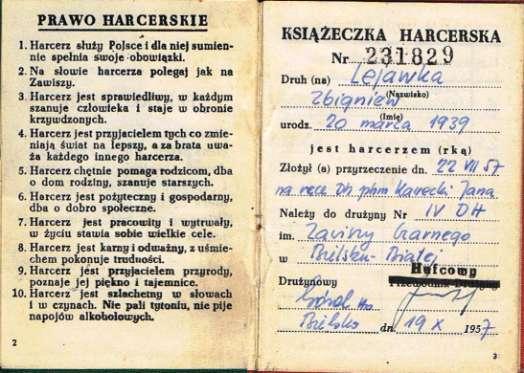 PRAWO HARCERSKIE
1. Harcerz służy Polsce i dla niej sumien-
nie spełnia swoje obowiązki.
2. Na słowie harcerza polegaj jak na
Zawiszy.
3. Harcerz jest sprawiedliwy, w każdym
szanuje człowieka i staje w obronie
krzywdzonych.
4. Harcerz jest przyjacielem tych co zmie-
niają świat na lepszy, a za brata uwa-
ża każdego innego harcerza.
5. Harcerz chętnie pomaga rodzicom, dba
o dom rodziny, szanuje starszych.
6. Harcerz jest pożyteczny i gospodarny,
dba o dobro społeczne.
7. Harcerz jest pracowity i wytrwały,
w życiu stawia sobie wielkie cele.
8. Harcerz jest karny i odważny, z uśmie-
chem pokonuje trudności.
9. Harcerz jest przyjacielem przyrody,
poznaje jej piękno i tajemnice.
10. Harcerz jest szlachetny w słowach
i w czynach. Nie pali tytoniu, nie pije
napojów alkoholowych.
2
KSIĄŻECZKA HARCERSKA
Nr 231829
Druh (na) Lejawka
(Nazwisko)
Zbigniew
(Imię)
urodz. 20 marca 1939
jest harcerzem (rką)
Złożył (a) przyrzeczenie dn. 22 VII 57
na ręce Dh phm Karecki Jana
Należy do drużyny Nr IV DH
im. Zawiszy Czarnego
w Bielsku-Białej
Hufcowy
Drużynowy
Bielsko dn. 19 X 1957
3